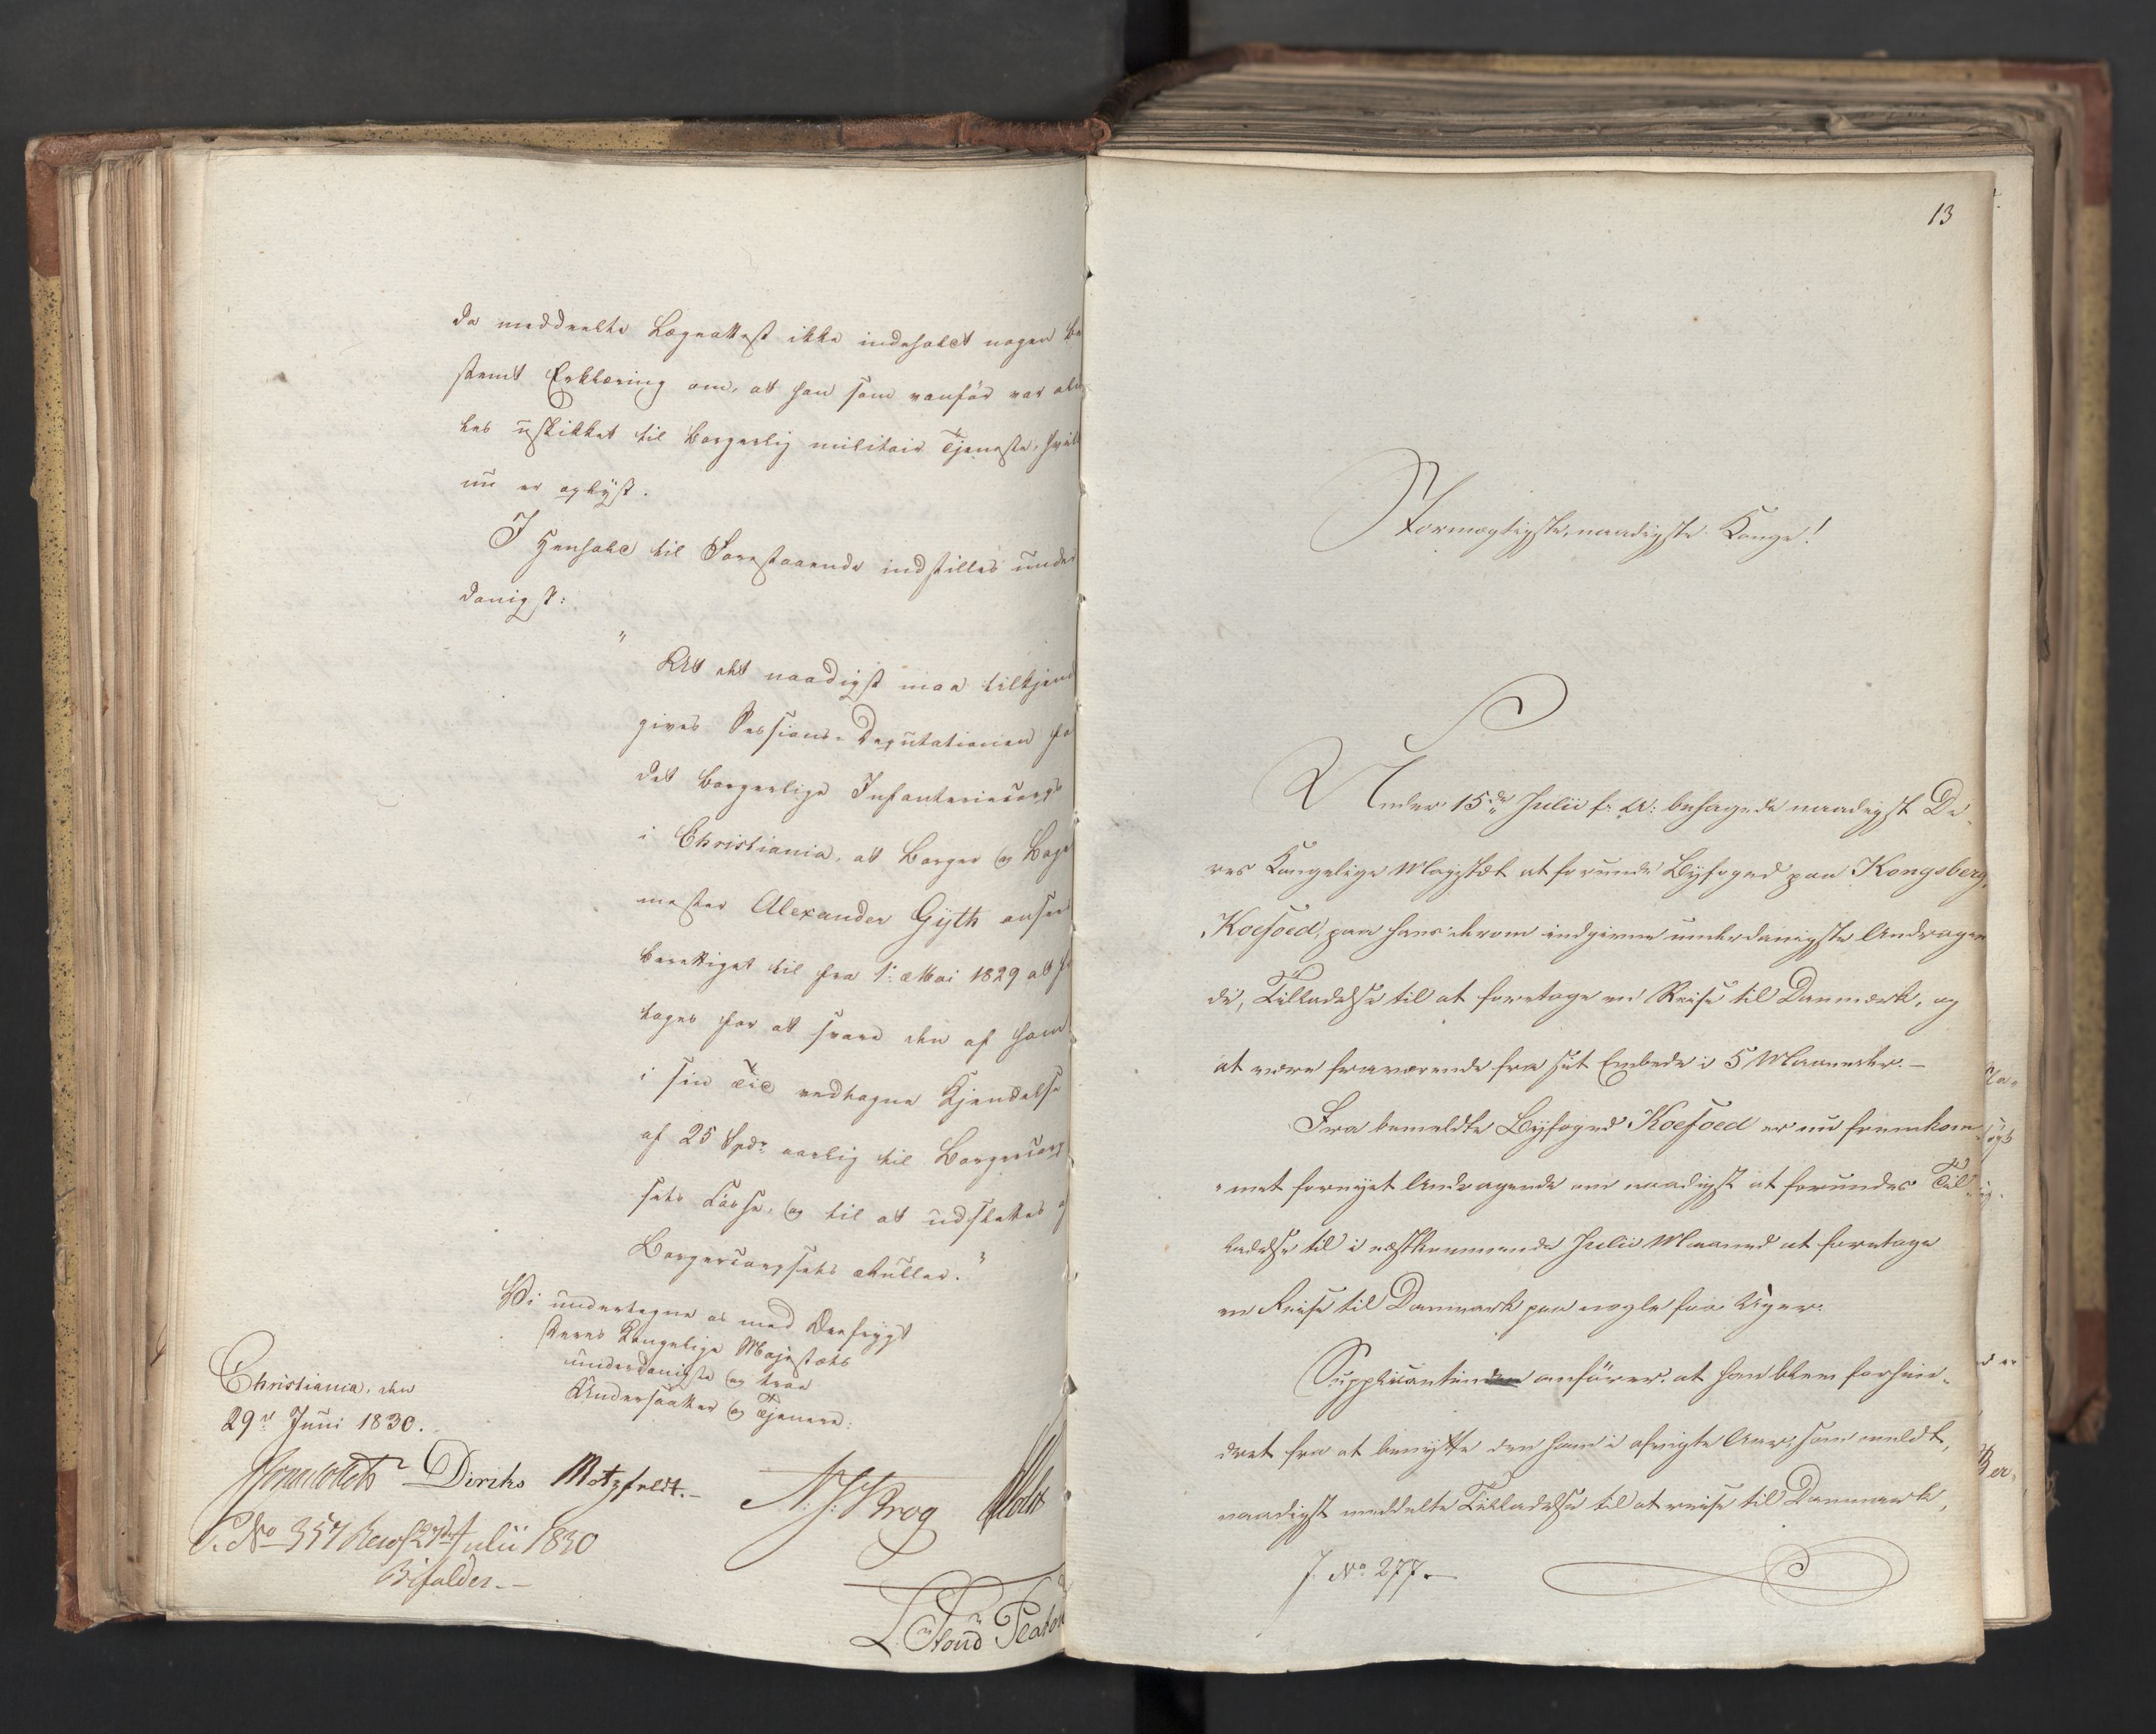 de meddeelte Lægeattest ikke indeholdt nogen be
stemt Erklæring om, at han som vanför var aldeles
les uskikket til borgerlig militair Tjeneste, hvilket
nu er oplyst.
I Henhold til Forestaaende indstilles under
danigst:
" At det naadigst maa tilkjende
gives Sessions-Deputationen for
det borgerlige Infanteriecorps
i Christiania, at Borger og Bager
mester Alexander Gÿth ansees
berettiget til fra 1: Mai 1829 at fri
tages for at svare den af ham
i sin Tid vedtagne Kjendelse
af 25 Spdr aarlig til Borgercorp
sets Casse, og til at udslettes af
Borgercorpsets Ruller."
Vi undertegne os med Ærefrygt
Deres Kongelige Majestæts
underdanigste og troe
Undersaatter og Tjenere:
Christiania, den
29de Juni 1830.
Diriks Motzfeldt. Krog Holst
P. No 357 Res. 27de Julii 1830
Bifaldes.-
L. Roud Platou
13
Stormægtigste, naadigste Konge!
Under 15de Julii f: A: behagede naadigst De-
res Kongelige Majestæt at forunde Byfoged paa Kongsberg,
Koefoed, paa hans derom indgivne underdanigste Andragen
de, Tilladelse til at foretage en Reise til Danmark, og
at være fraværende fra sit Embede i 5 Maaneder.-
Fra bemeldte Byfoged Koefoed er nu fremkom-
met fornyet Andragende om naadigst at forundes Til-
ladelse til i næstkommende Julii Maaned at foretage
en Reise til Danmark paa nogle faa Uger.
Supplicanten anfører, at han blev forhin-
dret fra at benytte den ham i afvigte Aar, som meldt,
naadigst meddelte Tilladelse til at reise til Danmark,
J. No 277.-